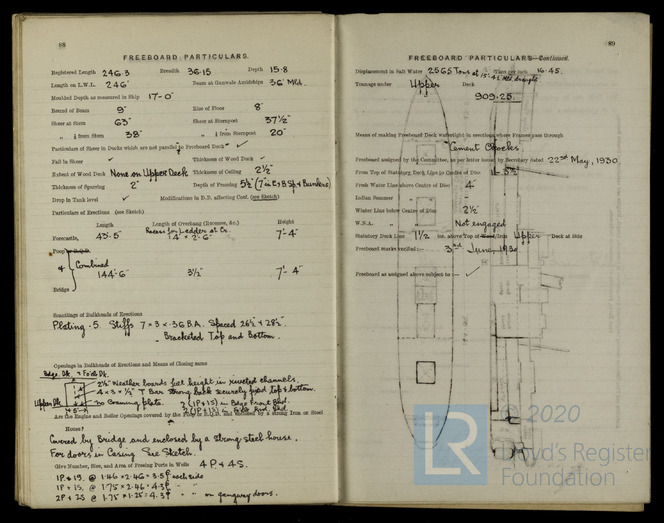 88
FREEBOARD PARTICULARS.
Registered Length 246.3 Breadth 36.15 Depth 15.8
Length on L.W.L. 246' Beam at Gunwale Amidships 36' Mld.
Moulded Depth as measured in Ship 17'-0"
Round of Beam 9" Rise of Floor 8"
Sheer at Stem 63" Sheer at Sternpost 37½"
" ⅛ from Stem 38" " ⅛ from Sternpost 20"
Particulars of Sheer in Decks which are not parallel to Freeboard Deck ✓
Fall in Sheer ✓ Thickness of Wood Deck
Extent of Wood Deck None on Upper Deck Thickness of Ceiling 2½"
Thickness of Sparring 2" Depth of Framing 5½"
Drop in Tank level ✓ Modifications in D.B. affecting Cont. (see Sketch)
Particulars of Erections (see Sketch)
Length Length of Overhang (Recesses, &c.) Height
Recess for Ladders at Cr.
Forecastle, 43'-5" 14" × 2'-6" 7'-4"
Poop
& Combined 144'-6" 3½" 7'-4"
Bridge
Scantlings of Bulkheads of Erections
Plating .5 Stiffs 7 × 3 × .36 B.A. Spaced 26½" & 28½"
Bracketed Top and Bottom.
Openings in Bulkheads of Erections and Means of Closing same
Bdge. Dk. & Fo'cl Dk.
2½" Weather boards full height in riveted channels.
4 × 3 × ½" T Bar strong back securely fixed top & bottom.
Upper Dk No Coaming plate. 2 (1P & 1S) in Bdge Front Bhd.
Are the Engine and Boiler Openings covered by the Poop or enclosed by a strong Iron or Steel
House?
Covered by Bridge and enclosed by a strong steel house.
For doors in Casing See Sketch.
Give Number, Size, and Area of Freeing Ports in Wells 4 P. & 4 S.
1P & 1S. @ 1.46 × 2.46 = 3.5 each side
1P & 1S. @ 1.75 × 2.46 = 4.3 " "
2P & 2S @ 1.75 × 1.25 = 4.3 " " on gangway doors.
89
FREEBOARD PARTICULARS—Continued.
Displacement in Salt Water 2565 Tons at Tons per inch 16.45.
Tonnage under Upper Deck
909.25.
Means of making Freeboard Deck watertight in erections where Frames pass through
Cement Chocks.
Freeboard assigned by the Committee, as per letter issued by Secretary dated 22nd May, 1930
From Top of Statutory Deck Line to Centre of Disc 1'-5½"
Fresh Water Line above Centre of Disc 4"
Indian Summer " "
Winter Line below Centre of Disc 2½"
W.N.A. " " Not engaged
Statutory Deck Line 1½ ins. above Top of Iron Upper Deck at Side
Freeboard marks verified 3rd June, 1930
Freeboard as assigned above subject to — ✓
LR © 2020
Lloyd's Register
Foundation